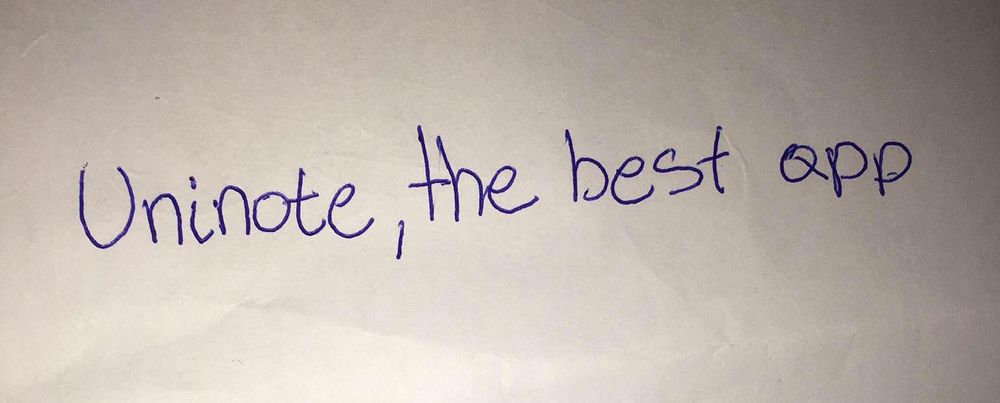 Uninote, the best app